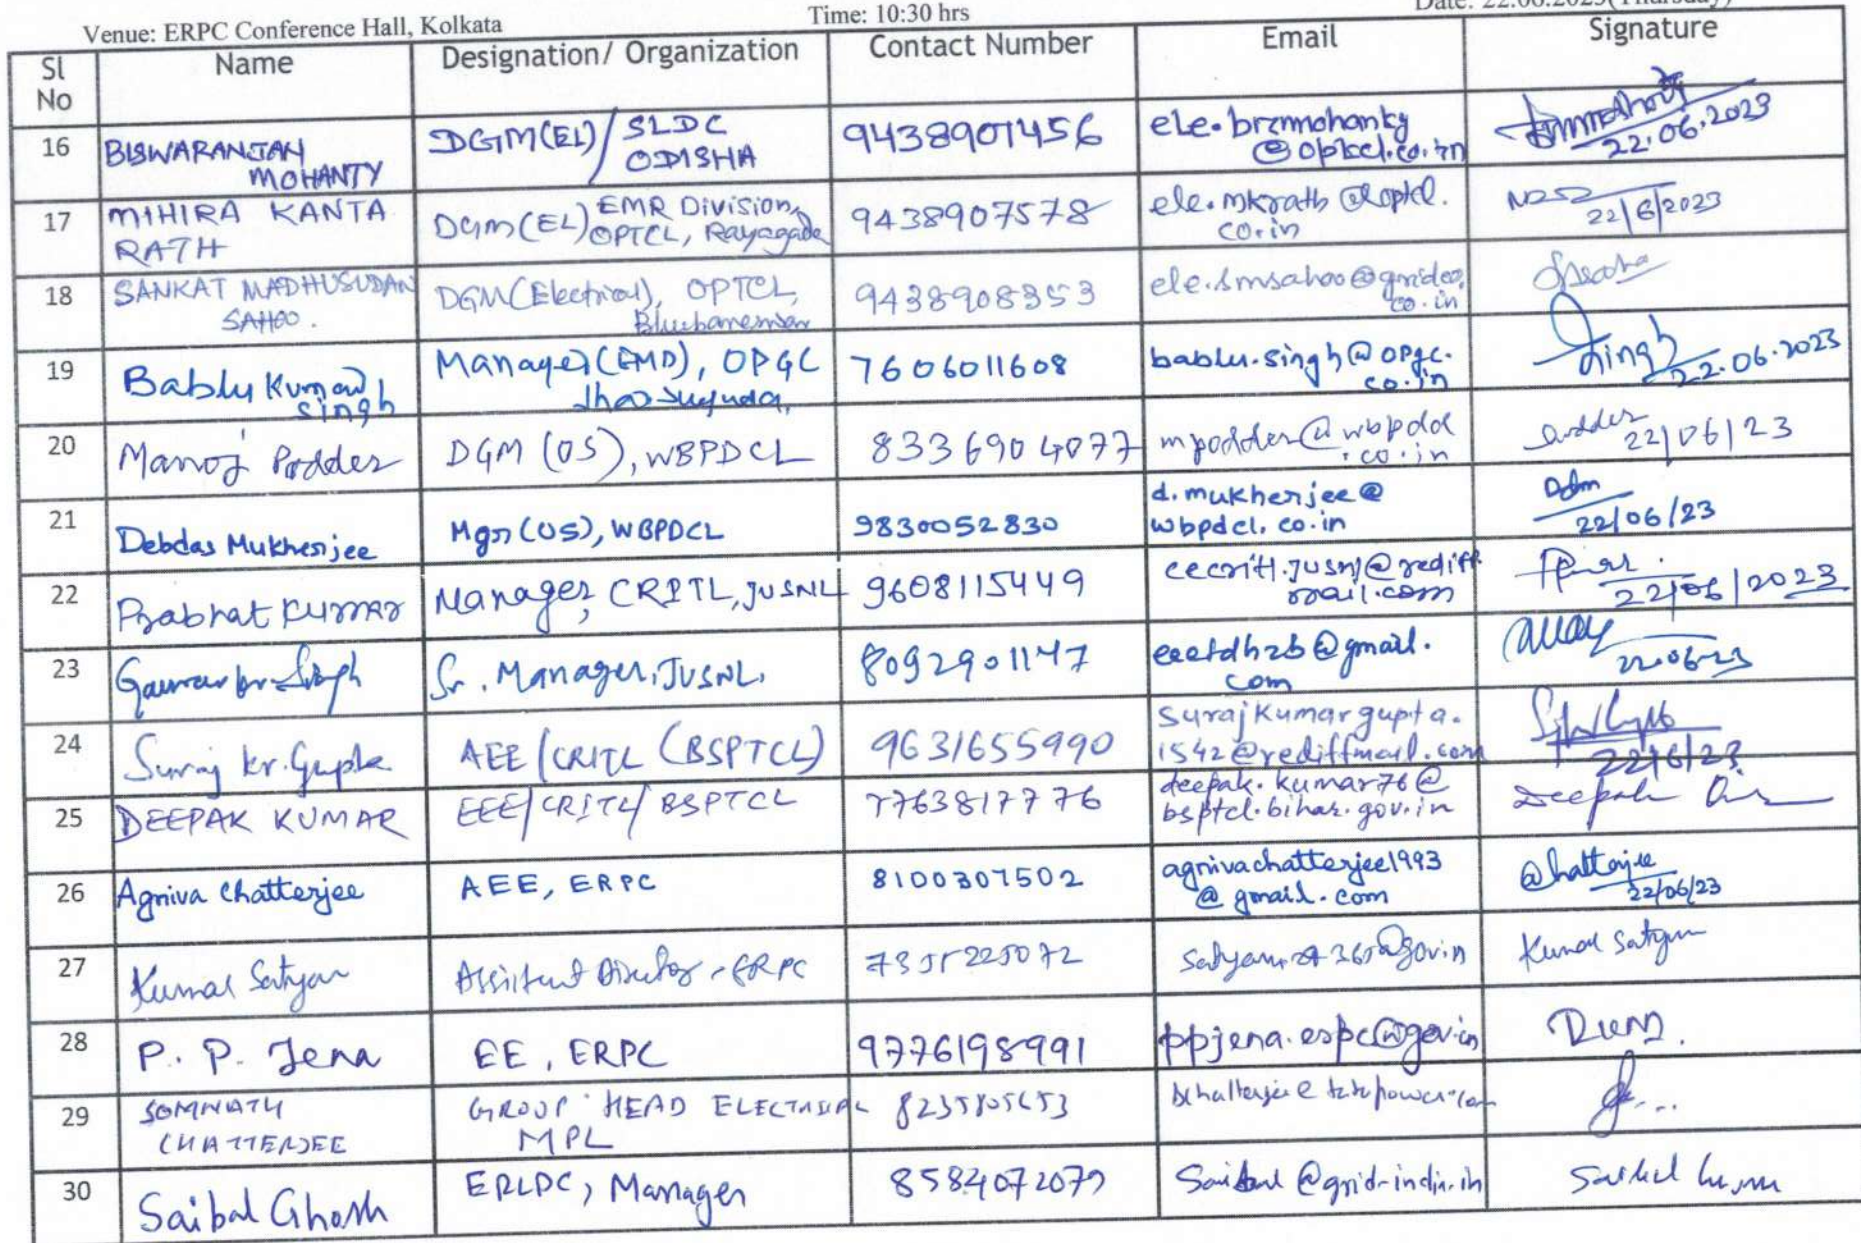 Venue: ERPC Conference Hall, Kolkata Time: 10:30 hrs Date: 22.06.2023(Thursday)
Sl No Name Designation/ Organization Contact Number Email Signature
16 BISWARANJAN MOHANTY DGM(EL)/ SLDC ODISHA 9438907456 22.06.2023
17 MIHIRA KANTA RATH DGM(EL) EMR Division, OPTCL, Rayagada 9438907578 ele.mkrath@optcl.co.in 22/6/2023
18 SANKAT MADHUSUDAN SAHOO. DGM(Electrical), OPTCL, Bhubaneswar 9438908353 ele.smsahoo@gridco.co.in
19 Bablu Kumar Singh Manager(EMD), OPGC 7606011608 bablu.singh@opgc.co.in Singh 22.06.2023
20 Manoj Podder DGM (OS), WBPDCL 8336904077 mpodder@wbpdcl.co.in 22/06/23
21 Debdas Mukherjee Mgr(OS), WBPDCL 9830052830 d.mukherjee@wbpdcl.co.in 22/06/23
22 Prabhat Kumar Manager, CRITL, JUSNL 9608115449 22/06/2023
23 Sr. Manager, JUSNL. 8092901147 22.06.23
24 Suraj kr. Gupta AEE/CRITL (BSPTCL) 9631655990 surajkumargupta.1542@rediffmail.com 22/6/23
25 DEEPAK KUMAR EEE/CRITL/BSPTCL 7763817776 deepak.kumar76@bsptcl.bihar.gov.in Deepak
26 Agniva Chatterjee AEE, ERPC 8100307502 agnivachatterjee1993@gmail.com Chatterjee 22/06/23
27 Kumar Satyam Assistant Director, ERPC Kumar Satyam
28 P. P. Jena EE, ERPC 9776198991 ppjena.erpc@gov.in
29 SOMNATH CHATTERJEE GROUP HEAD ELECTRICAL MPL
30 Saibal Ghosh ERLDC, Manager 8584072079